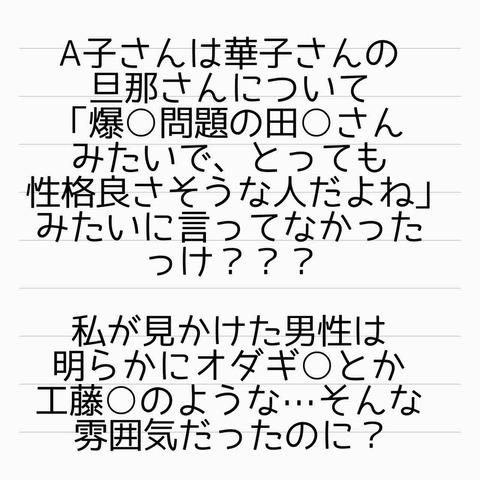 A子さんは華子さんの
旦那さんについて
「爆○問題の田○さん
みたいで、とっても
性格良さそうな人だよね」
みたいに言ってなかった
っけ？？？
私が見かけた男性は
明らかにオダギ○とか
工藤○のような…そんな
雰囲気だったのに？